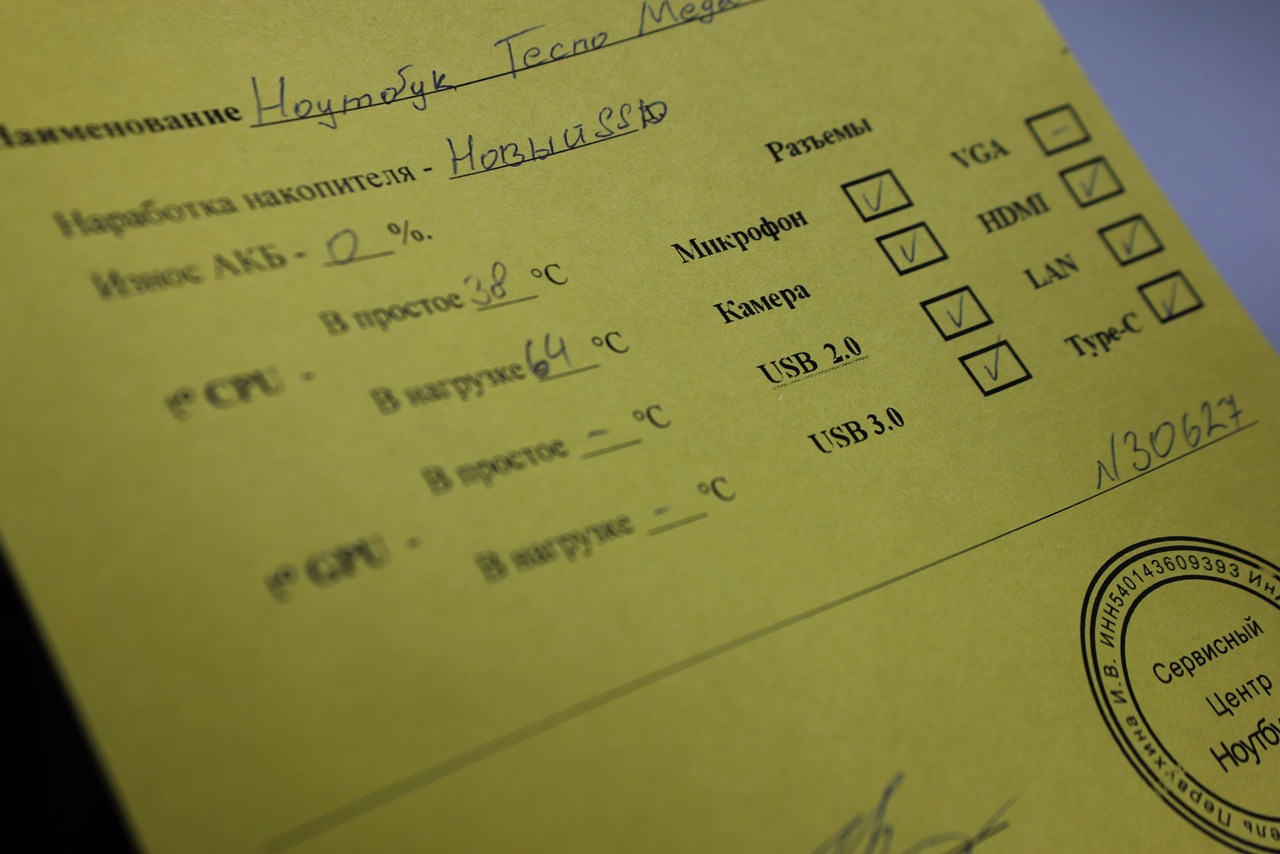 Наименование Ноутбук Tecno Mega
Наработка накопителя - Новый SSD
Износ АКБ - 0 %.
t° CPU -
В простое 38 °C
В нагрузке 64 °C
t° GPU -
В простое - °C
В нагрузке - °C
Разъемы
Микрофон ✓
Камера ✓
USB 2.0 ✓
USB 3.0 ✓
VGA -
HDMI ✓
LAN ✓
Type-C ✓
N30627
ИНН540143609393
Первухина И.В.
Сервисный
Центр